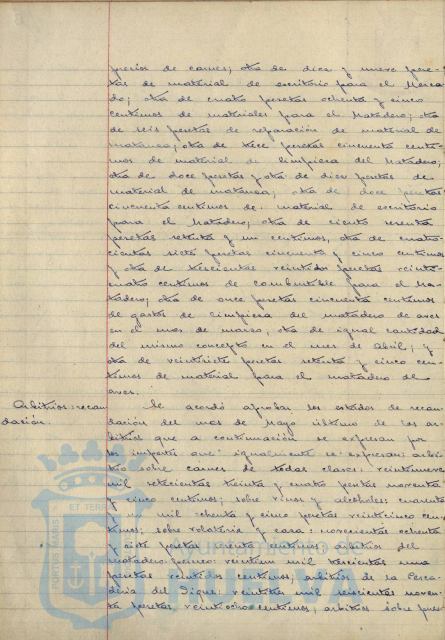 precios de carnes; otra de diez y nueve pese-
tas de material de escritorio para el Merca-
do; otra de cuatro pesetas ochenta y cinco
centimos de materiales para el Matadero; otra
de seis pesetas de reparación de material de
matanza; otra de trece pesetas cincuenta centi-
mos de material de limpieza del Matadero;
otra de doce pesetas y otra de diez pesetas de
material de matanza; otra de doce pesetas
cincuenta centimos de material de escritorio
para el Matadero; otra de ciento sesenta
pesetas setenta y un centimos, otra de cuatro-
cientas siete pesetas cincuenta y cinco centimos
y otra de trescientas veintidos pesetas veinte
cuatro centimos de combustible para el Ma-
tadero; otra de once pesetas cincuenta centimos
de gastos de limpieza del matadero de aves
en el mes de marzo, otra de igual cantidad
del mismo concepto en el mes de Abril; y
otra de veintisiete pesetas setenta y cinco cen-
timos de material para el matadero de
aves.
Arbitrios: recau
dación.
Se acordó aprobar los estados de recau-
dación del mes de Mayo último de los ar-
bitrios que a continuación se expresan por
los importes que igualmente se expresan: arbi-
trio sobre carnes de todas clases: veintinueve
mil setecientas treinta y cuatro pesetas noventa
y cinco centimos; sobre vinos y alcoholes: cuarenta
y un mil ochenta y cinco pesetas veinticinco cen-
timos; sobre volateria y caza: novecientas ochenta
y siete pesetas centimos, arbitrios del
matadero: veintiun mil trescientas una
pesetas veintidos centimos, arbitrios de la Pesca-
deria del Dique: veintitres mil seiscientas noven-
ta pesetas, veintiocho centimos, arbitrios sobre pues-
PORTUS MARIS ET TERRAE
Ayuntamiento de
HUELVA